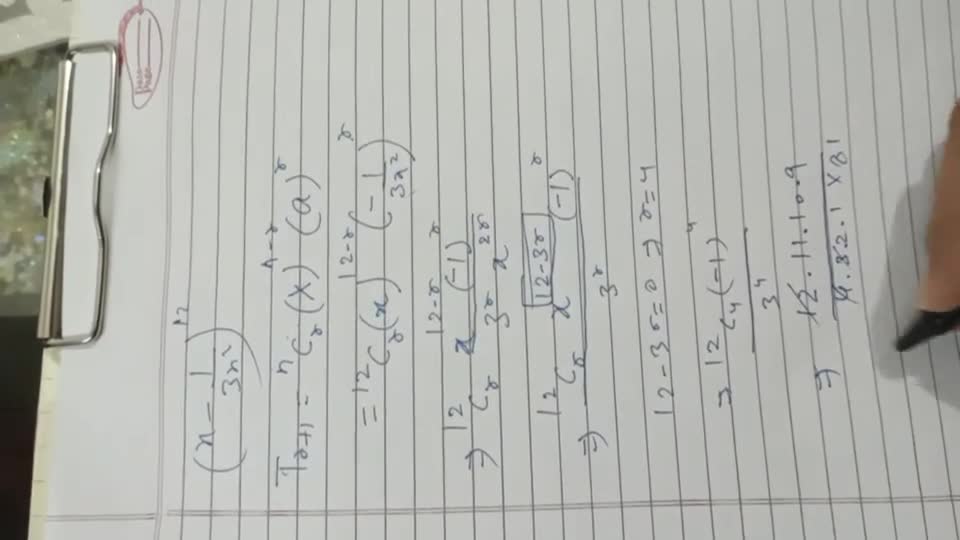 (x - 1/3x²)¹²
Tᵣ₊₁ = ⁿCᵣ (x)ⁿ⁻ʳ (a)ʳ
= ¹²Cᵣ (x)¹²⁻ʳ (-1/3x²)ʳ
⇒ ¹²Cᵣ x¹²⁻ʳ (-1)ʳ / 3ʳ x²ʳ
⇒ ¹²Cᵣ x¹²⁻³ʳ (-1)ʳ / 3ʳ
12-3r=0 ⇒ r=4
⇒ ¹²C₄ (-1)⁴ / 3⁴
⇒ 12.11.10.9 / 4.32.1 x 81